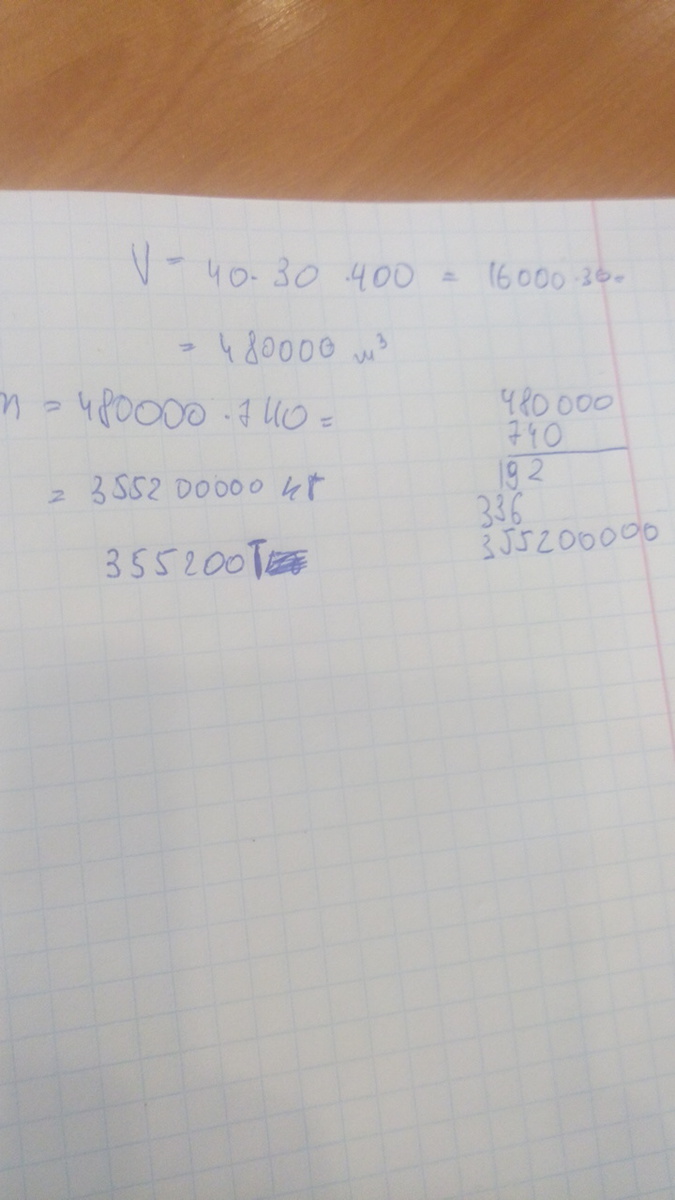 V = 40 · 30 · 400 = 16000 · 30 =
= 480000 м³
m = 480000 · 740 =
= 355200000 кг
355200 Т
480000
740
192
336
355200000